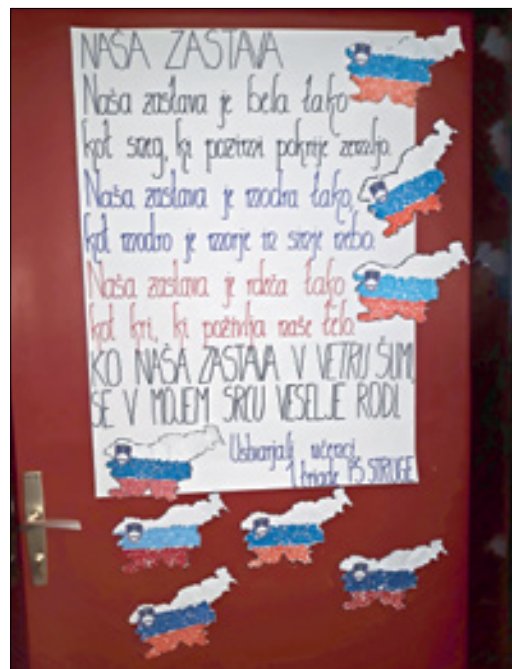 NAŠA ZASTAVA
Naša zastava je bela tako
kot sneg, ki pozimi pokrije zemljo.
Naša zastava je modra tako,
kot modro je morje in sinje nebo.
Naša zastava je rdeča tako
kot kri, ki poživlja naše telo.
KO NAŠA ZASTAVA V VETRU ŠUMI,
SE V MOJEM SRCU VESELJE RODI.
Ustvarjali učenci
1. triade PŠ STRUGE